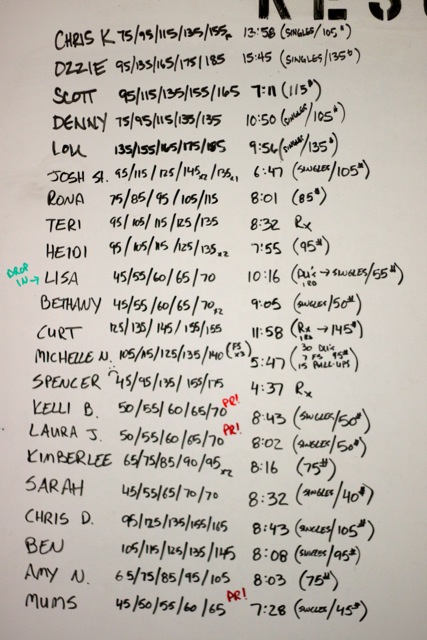 RES
CHRIS K 75/95/115/135/155 13:58 (SINGLES/105#)
OZZIE 95/135/165/175/185 15:45 (SINGLES/135#)
SCOTT 95/115/135/155/165 7:11 (115#)
DENNY 75/95/115/135/135 10:50 (SINGLES/105#)
LOU 135/155/165/175/185 9:56 (SINGLES/135#)
JOSH St. 95/115/125/145x2/135x1 6:47 (SINGLES/105#)
RONA 75/85/95/105/115 8:01 (85#)
TERI 95/105/115/125/135 8:32 Rx
HEIDI 95/105/115/125/135x2 7:55 (95#)
DROP IN → LISA 45/55/60/65/70 10:16 (DU's → SINGLES/55#)
BETHANY 45/55/60/65/70x2 9:05 (SINGLES/50#)
CURT 125/135/145/155/155 11:58 (Rx → 145#)
MICHELLE N. 105/115/125/135/140 (FS x3) 5:47 (30 DU's 7 FS 95# 15 PULL-UPS)
SPENCER 45/95/135/155/175 4:37 Rx
KELLI B. 50/55/60/65/70 PR! 8:43 (SINGLES/50#)
LAURA J. 50/55/60/65/70 PR! 8:02 (SINGLES/50#)
KIMBERLEE 65/75/85/90/95x2 8:16 (75#)
SARAH 45/55/65/70/70 8:32 (SINGLES/40#)
CHRIS D. 95/125/135/155/165 8:43 (SINGLES/105#)
BEN 105/115/125/135/145 8:08 (SINGLES/95#)
AMY N. 65/75/85/95/105 8:03 (75#)
MUMS 45/50/55/60/65 PR! 7:28 (SINGLES/45#)